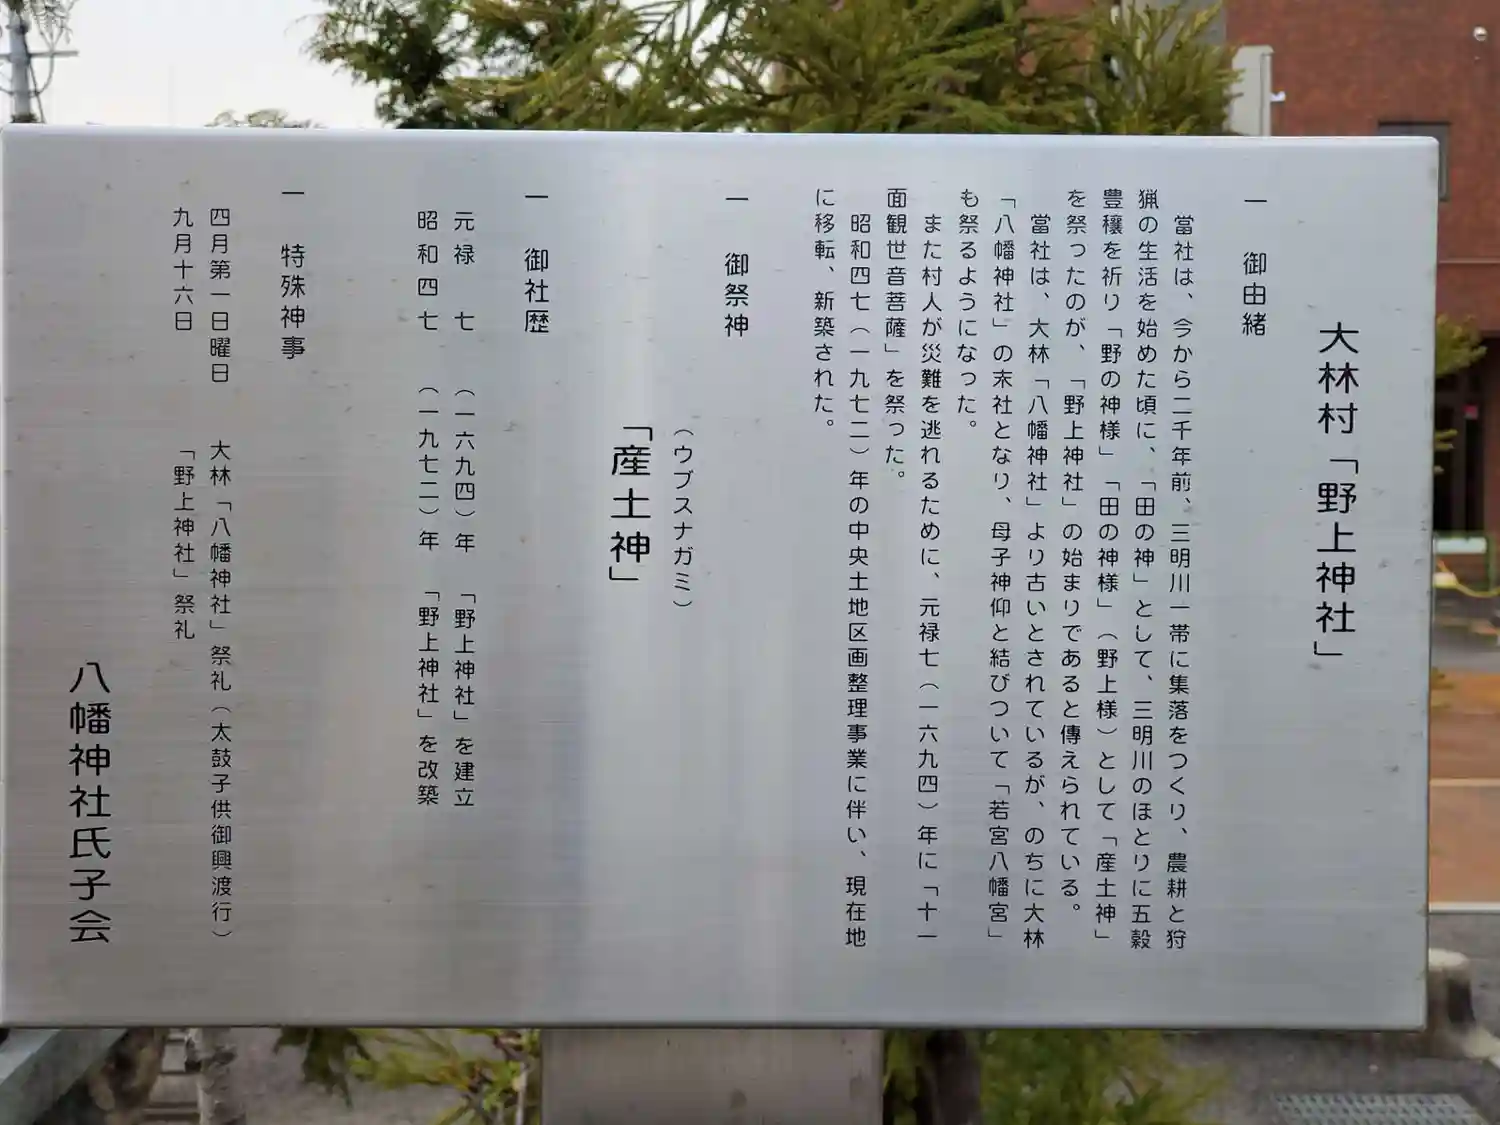 大林村「野上神社」
一　御由緒
當社は、今から二千年前、三明川一帯に集落をつくり、農耕と狩
猟の生活を始めた頃に、「田の神」として、三明川のほとりに五穀
豊穰を祈り「野の神様」「田の神様」（野上様）として「産土神」
を祭ったのが、「野上神社」の始まりであると傳えられている。
當社は、大林「八幡神社」より古いとされているが、のちに大林
「八幡神社」の末社となり、母子神仰と結びついて「若宮八幡宮」
も祭るようになった。
また村人が災難を逃れるために、元禄七（一六九四）年に「十一
面観世音菩薩」を祭った。
昭和四七（一九七二）年の中央土地区画整理事業に伴い、現在地
に移転、新築された。
一　御祭神
（ウブスナガミ）
「産土神」
一　御社歴
元禄　七　（一六九四）年　「野上神社」を建立
昭和四七　（一九七二）年　「野上神社」を改築
一　特殊神事
四月第一日曜日　大林「八幡神社」祭礼（太鼓子供御興渡行）
九月十六日　「野上神社」祭礼
八幡神社氏子会